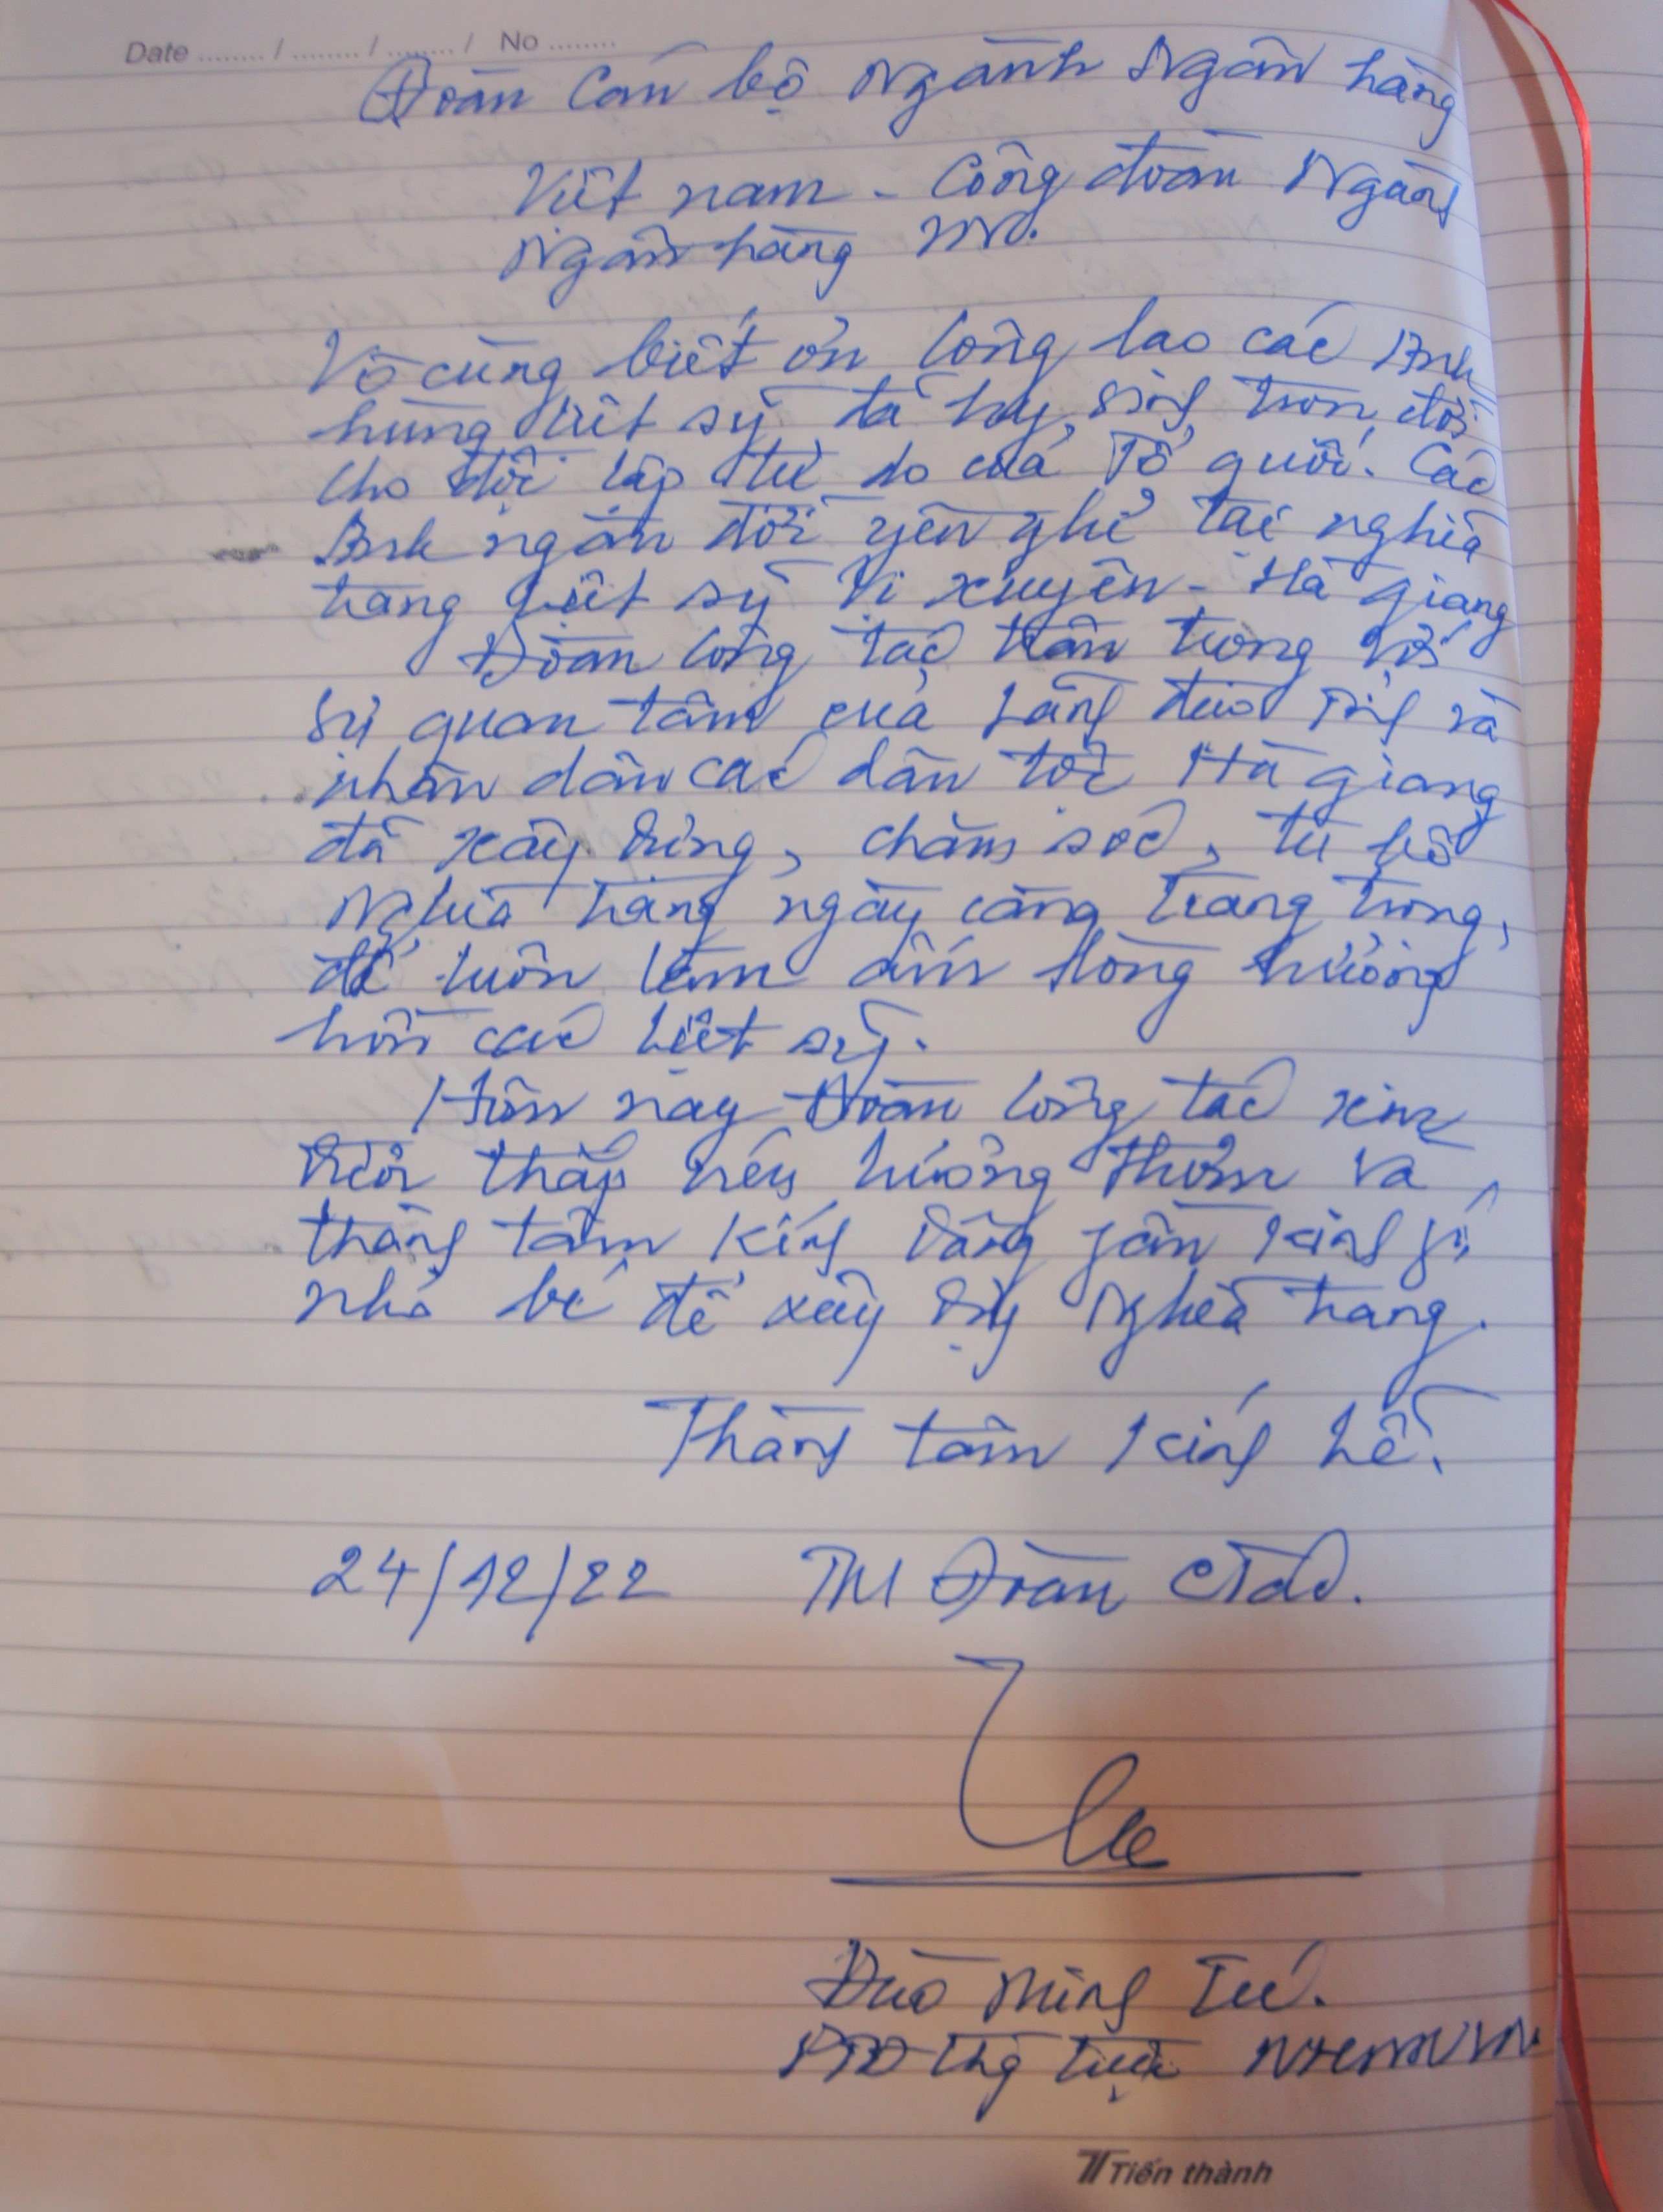 Date ........ / ........ / ........ / No ........
Đoàn Cán bộ Ngành Ngân hàng
Việt nam - Công đoàn Ngành
Ngân hàng VN.
Vô cùng biết ơn công lao các Anh
hùng liệt sỹ đã hy sinh trọn đời
cho độc lập tự do của Tổ quốc. Các
Anh ngàn đời yên nghỉ tại nghĩa
trang Liệt sỹ Vị xuyên - Hà giang
Đoàn công tác trân trọng với
sự quan tâm của Lãnh đạo Tỉnh và
nhân dân các dân tộc Hà giang
đã xây dựng, chăm sóc, tu bổ
Nghĩa trang ngày càng trang trọng,
để luôn làm ấm lòng hương
hồn các liệt sỹ.
Hôm nay Đoàn công tác xin
được thắp nén hương thơm và
thành tâm kính dâng phần kinh phí
nhỏ bé để xây dựng Nghĩa trang.
Thành tâm kính lễ.
24/12/22 TM Đoàn CTác.
Đào Minh Tú.
PTĐ thg trực NHNNVN
Tiến thành